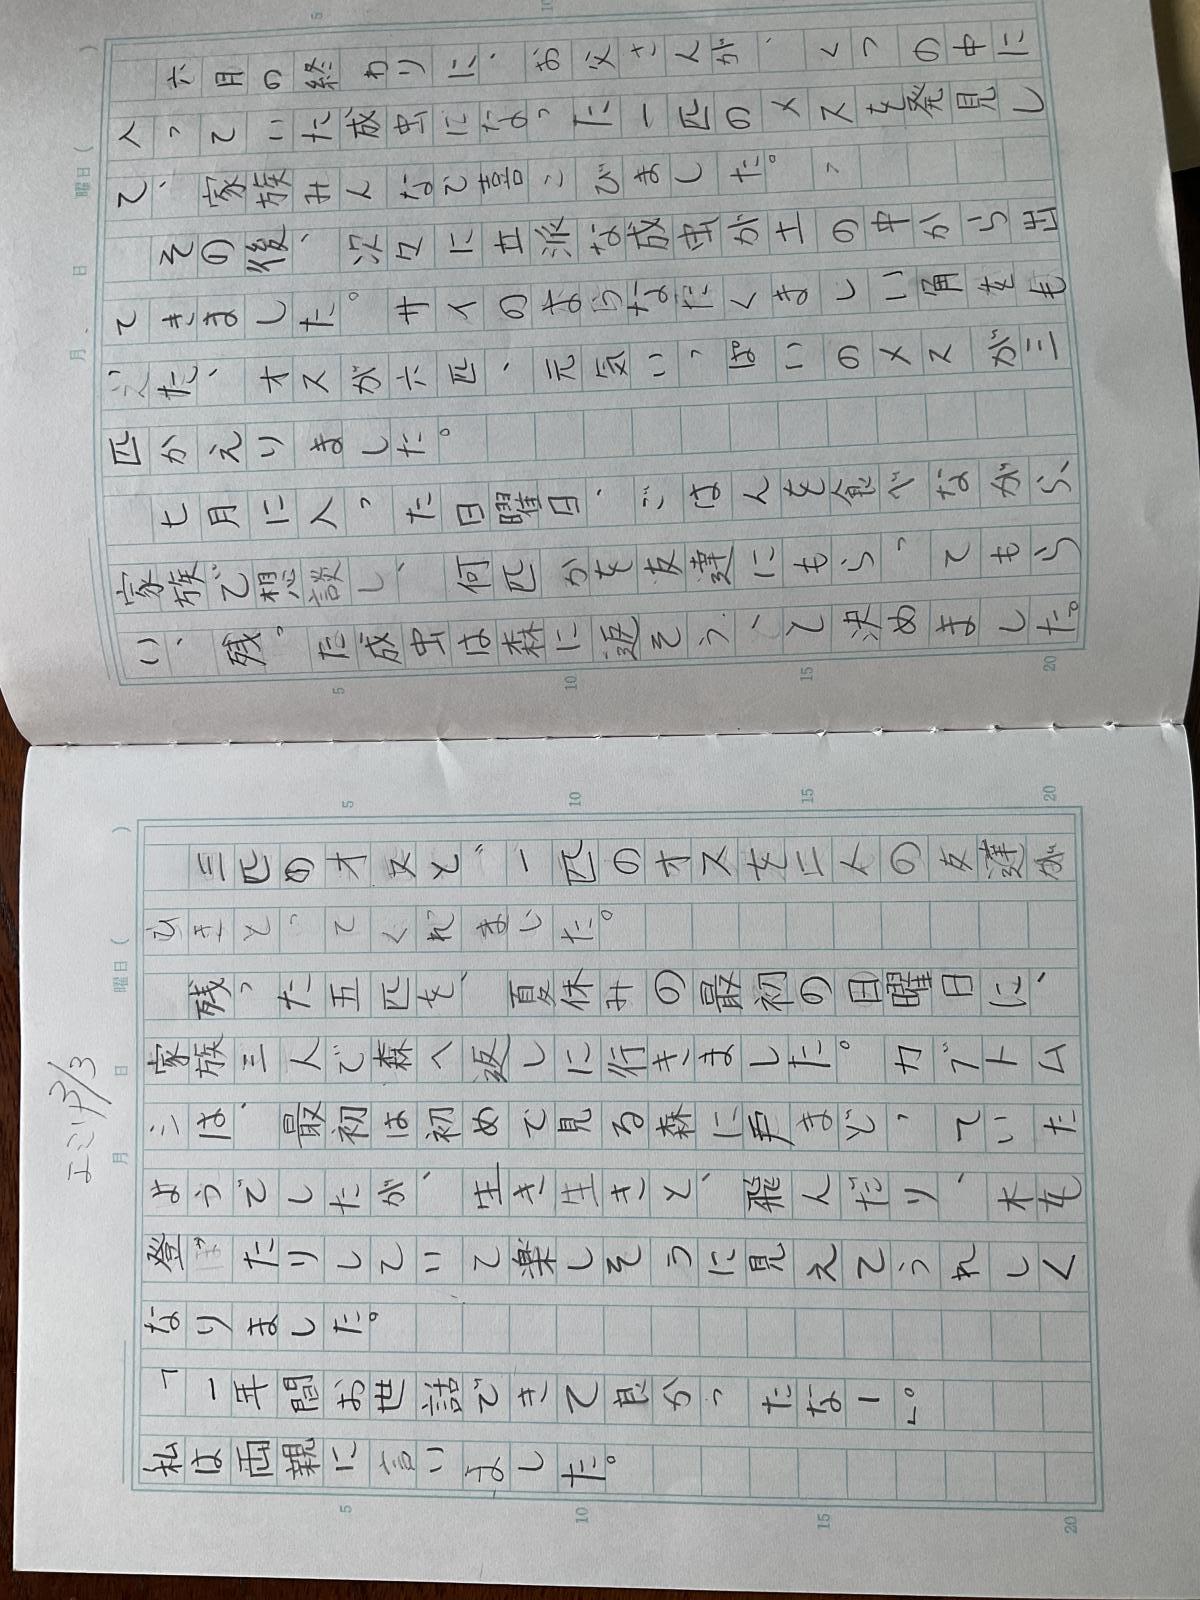 六月の終わりに、お父さんが、くつの中に
入っていた成虫になった一匹のメスを発見し
て、家族みんなで喜こびました。
その後、次々に立派な成虫が土の中から出
てきました。サイのようなたくましい角をも
った、オスが六匹、元気いっぱいのメスが三
匹かえりました。
七月に入った日曜日、ごはんを食べながら、
家族で想談し、何匹かを友達にもらってもら
い、残った成虫は森に返そうって決めました。
エミリ 3/3
月 日 曜日( )
三匹のオスと、一匹のオスを二人の友達が
ひきとってくれました。
残った五匹を、夏休みの最初の日曜日に、
家族三人で森へ返しに行きました。カブトム
シは、最初は初めて見る森に戸まどっていた
ようでしたが、生き生きと、飛んだり、木を
登ぼたりしていて楽しそうに見えてうれしく
なりました。
「一年間お世話できて良かったなー」。
私は両親に言いました。